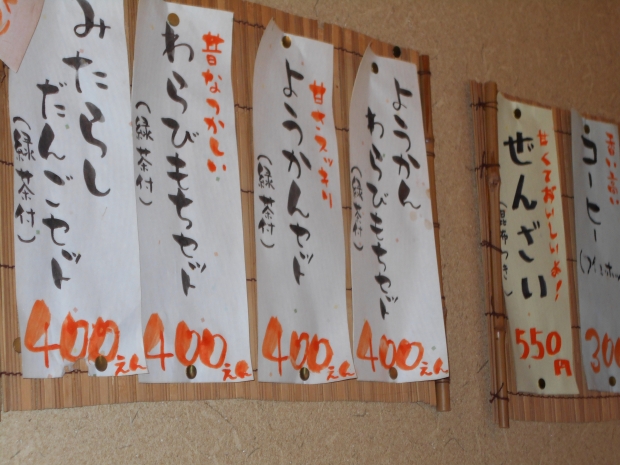 みたらし
だんごセット
(緑茶付)
400えん
昔なつかしい
わらびもちセット
(緑茶付)
400えん
甘さスッキリ
ようかんセット
(緑茶付)
400えん
ようかん
わらびもちセット
(緑茶付)
400えん
甘くておいしいよ!
ぜんざい
(昆布つき)
550円
コーヒー
300